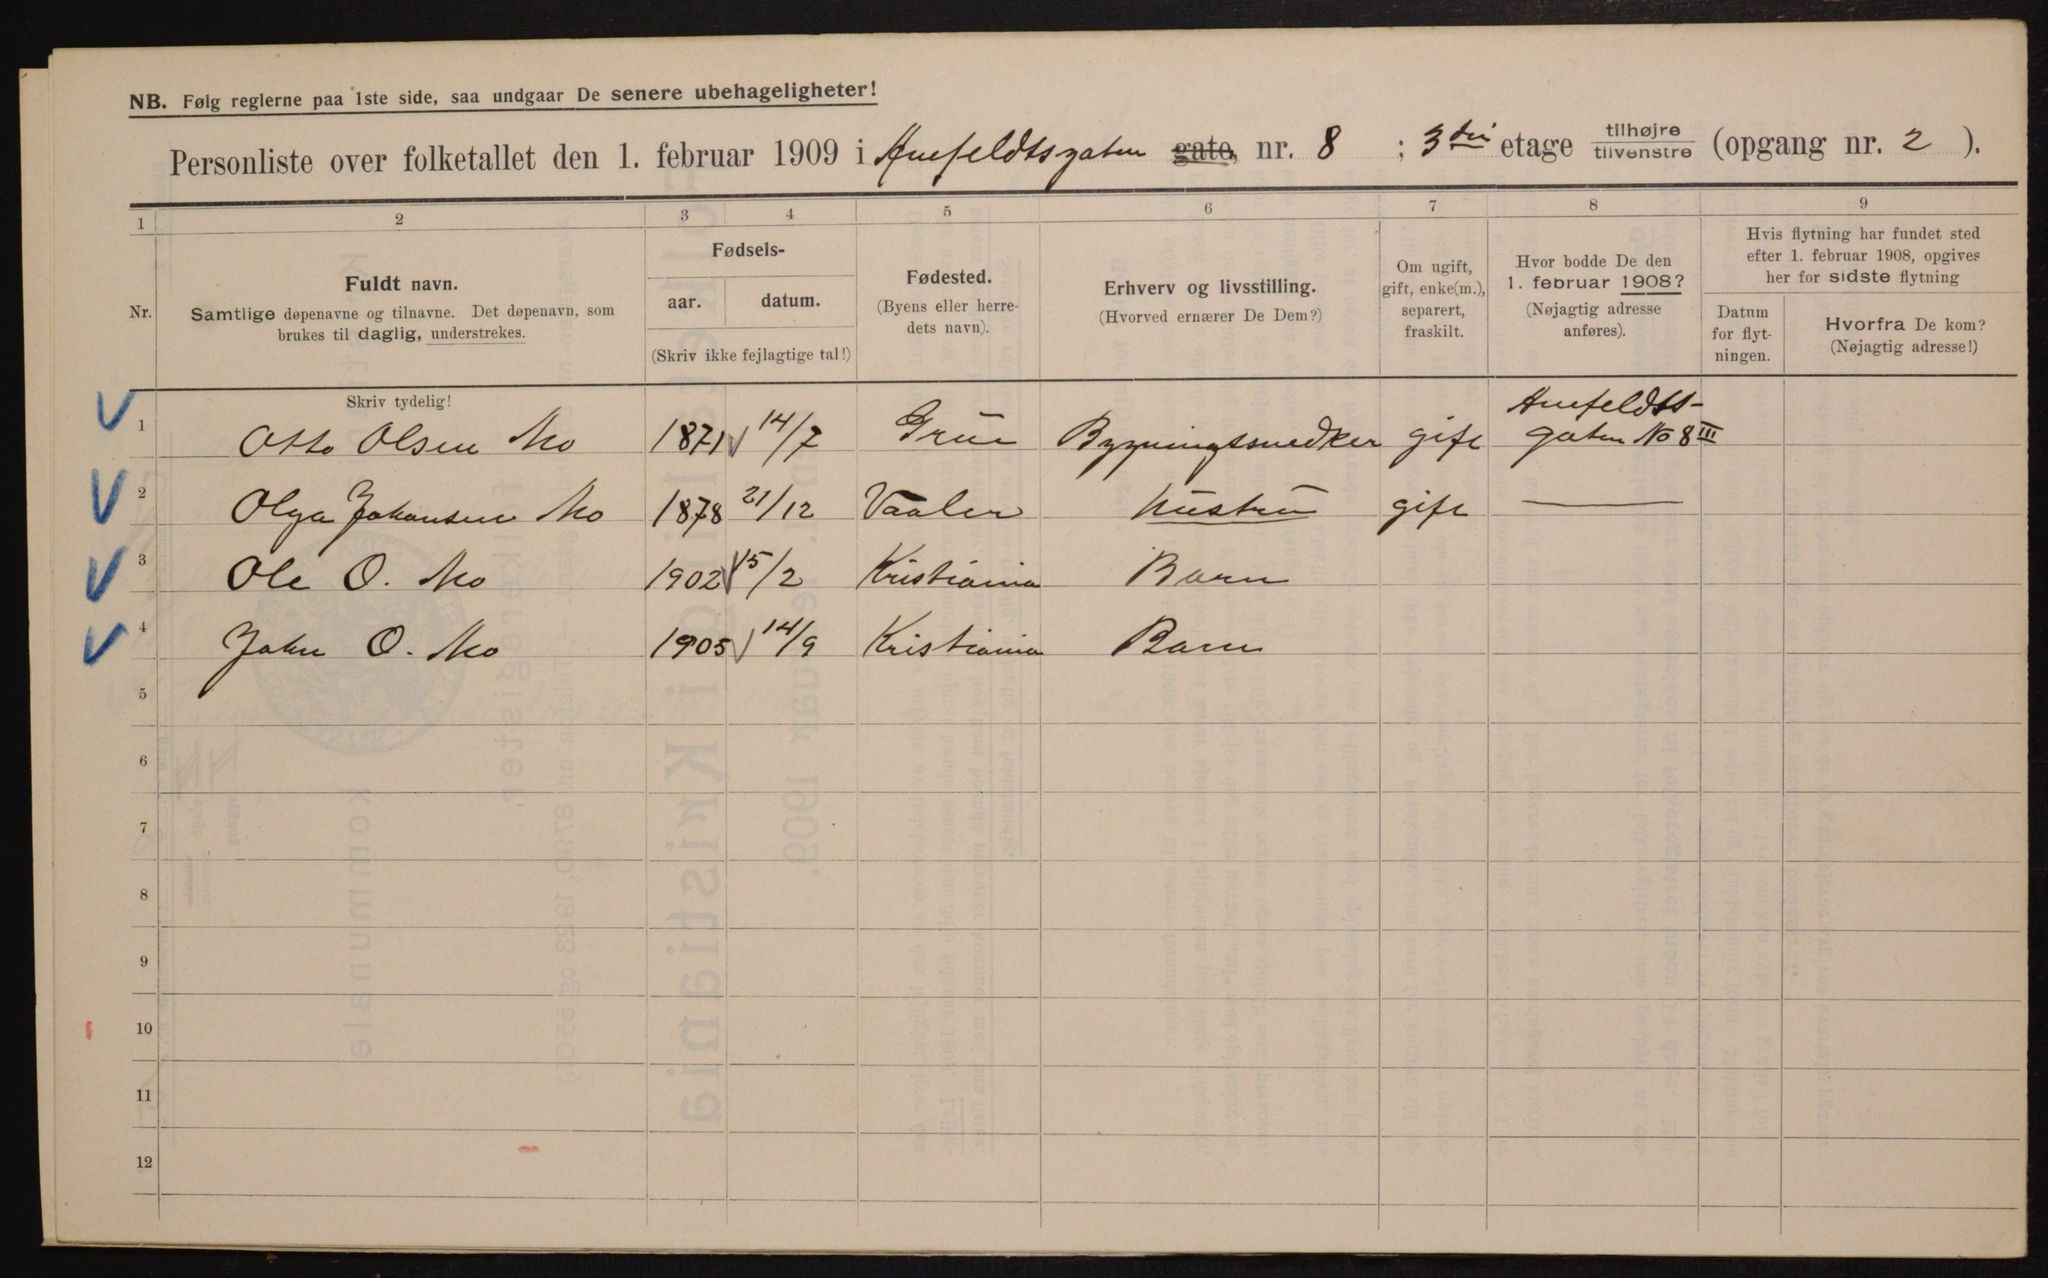 NB. Følg reglerne paa 1ste side, saa undgaar De senere ubehageligheter!
Personliste over folketallet den 1. februar 1909 i Huitfeldtsgaten gate, nr. 8 ; 3die etage tilhøjre tilvenstre (opgang nr. 2 ).
1 2 3 4 5 6 7 8 9
Nr.
Fuldt navn.
Samtlige døpenavne og tilnavne. Det døpenavn, som
brukes til daglig, understrekes.
Fødsels-
aar. datum.
(Skriv ikke fejlagtige tal!)
Fødested.
(Byens eller herre-
dets navn).
Erhverv og livsstilling.
(Hvorved ernærer De Dem?)
Om ugift,
gift, enke(m.),
separert,
fraskilt.
Hvor bodde De den
1. februar 1908?
(Nøjagtig adresse
anføres).
Hvis flytning har fundet sted
efter 1. februar 1908, opgives
her for sidste flytning
Datum
for flyt-
ningen.
Hvorfra De kom?
(Nøjagtig adresse!)
Skriv tydelig!
1 Otto Olsen Mo 1871 14/7 Grue Bygningssnedker gift Huitfeldts-
gaten No 8 III
2 Olga Johansen Mo 1878 21/12 Vaaler Hustru gift —
3 Ole O. Mo 1902 15/2 Kristiania Barn
4 John O. Mo 1905 14/9 Kristiania Barn
5
6
7
8
9
10
11
12